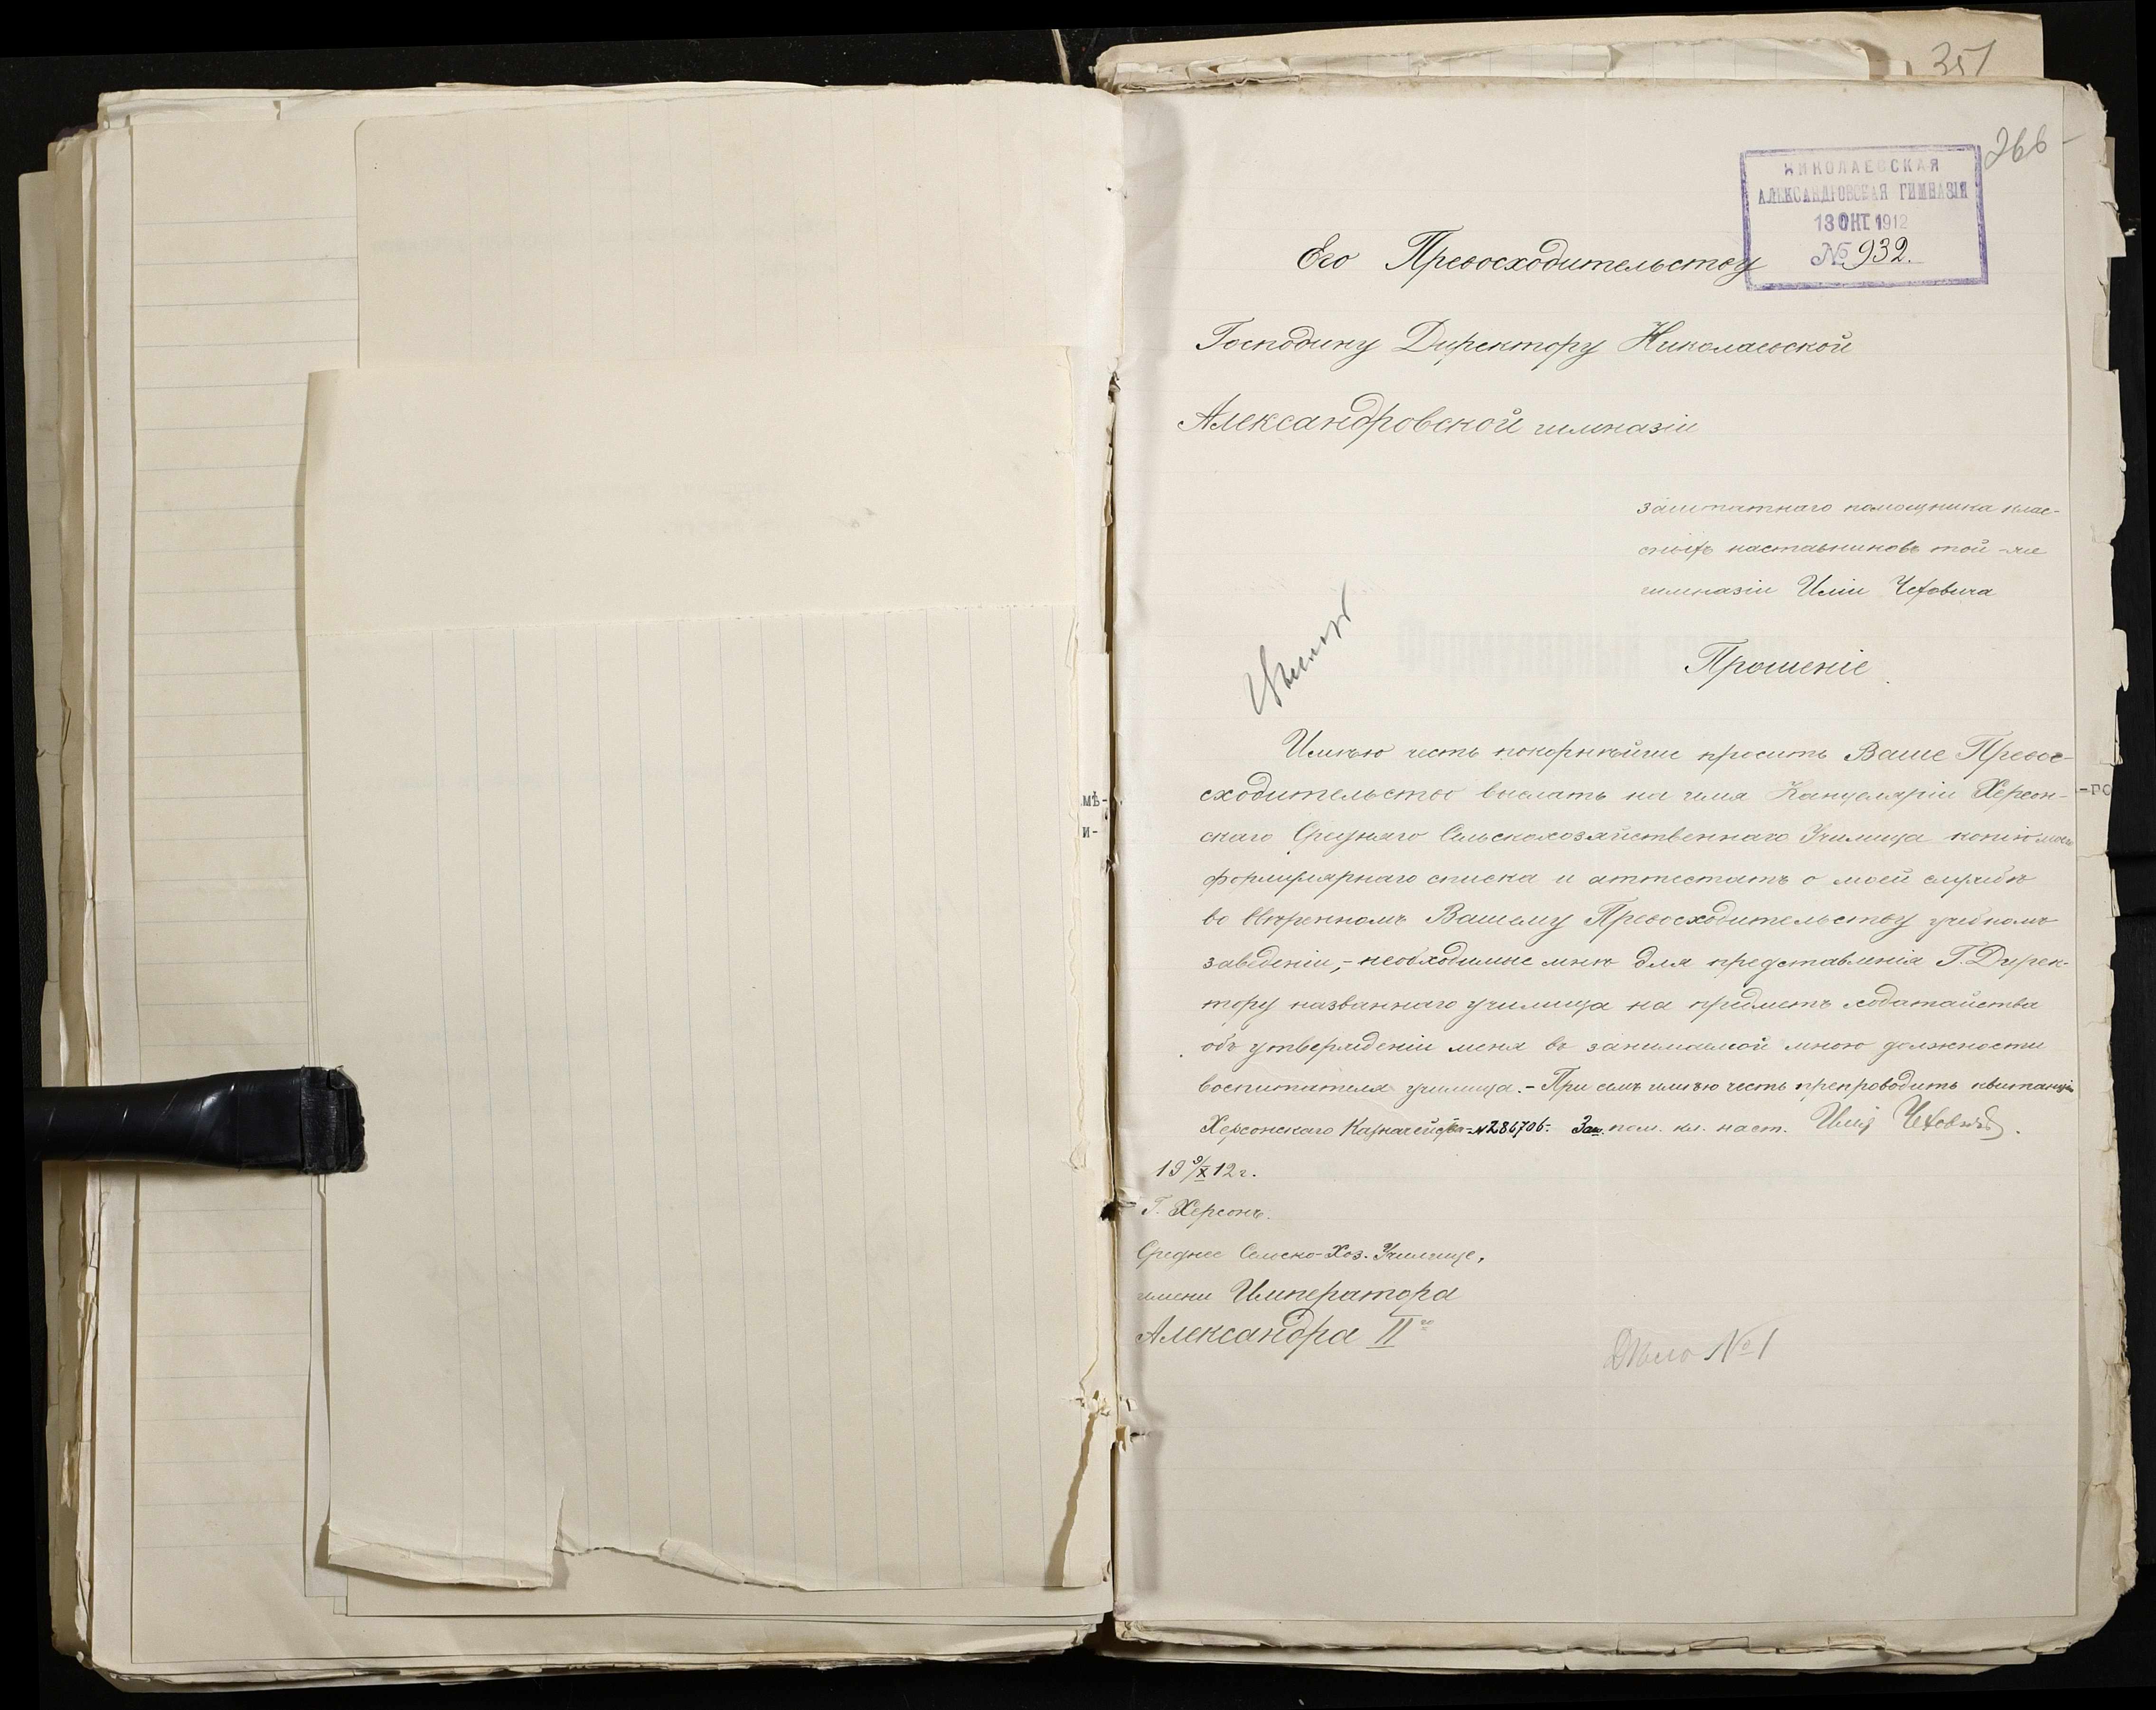 351
266
НИКОЛАЕВСКАЯ
АЛЕКСАНДРОВСКАЯ ГИМНАЗІЯ
13 ОКТ. 1912
№ 932.
Его Превосходительству
Господину Директору Николаевской
Александровской гимназіи
заштатнаго помощника клас-
сныхъ наставниковъ той-же
гимназіи Иліи Чеховича
Прошеніе
Имѣю честь покорнѣйше просить Ваше Превос-
сходительство выслать на имя Канцеляріи Херсон-
скаго Средняго Сельскохозяйственнаго Училища копію моего
формулярнаго списка и аттестатъ о моей службѣ
во ввѣренномъ Вашему Превосходительству учебномъ
заведеніи,- необходимые мнѣ для представленія Г. Дирек-
тору названнаго училища на предметъ ходатайства
объ утвержденіи меня въ занимаемой мною должности
воспитателя училища.- При семъ имѣю честь препроводить квитанцію
Херсонскаго Казначейства №286706. Заш. пом. кл. наст. Илія Чеховичъ.
19 9/X 12 г.
Г. Херсонъ.
Среднее Сельско-Хоз. Училище,
имени Императора
Александра II го
Дѣло №1
мѣ-
и-
-го